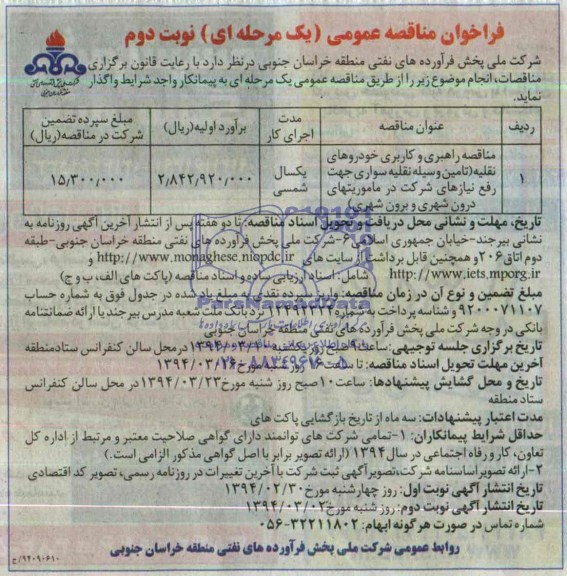 فراخوان مناقصه عمومی (یک مرحله ای) نوبت دوم
شرکت ملی پخش فرآورده های نفتی منطقه خراسان جنوبی درنظر دارد با رعایت قانون برگزاری
مناقصات، انجام موضوع زیر را از طریق مناقصه عمومی یک مرحله ای به پیمانکار واجد شرایط واگذار
نماید.
ردیف عنوان مناقصه مدت اجرای کار برآورد اولیه(ریال) مبلغ سپرده تضمین شرکت در مناقصه(ریال)
۱ مناقصه راهبری و کاربری خودروهای نقلیه(تامین وسیله نقلیه سواری جهت رفع نیازهای شرکت در ماموریتهای درون شهری و برون شهری) یکسال شمسی ۲/۸۴۲/۹۲۰/۰۰۰ ۱۵/۳۰۰/۰۰۰
تاریخ، مهلت و نشانی محل دریافت و تحویل اسناد مناقصه: تا دو هفته پس از انتشار آخرین آگهی روزنامه به
نشانی بیرجند-خیابان جمهوری اسلامی ۶-شرکت ملی پخش فرآورده های نفتی منطقه خراسان جنوبی-طبقه
دوم اتاق ۲۰۶ و همچنین قابل برداشت از سایت های http://www.monaghese.niopdc.ir و
http://www.iets.mporg.ir شامل: اسناد ارزیابی ساده و اسناد مناقصه (پاکت های الف، ب و ج)
مبلغ تضمین و نوع آن در زمان مناقصه: واریز سپرده نقدی به مبلغ یاد شده در جدول فوق به شماره حساب
۹۲۰۰۰۷۱۱۰۷ و شناسه پرداخت به شماره ۱۳۴۹۲۳۲۴ نزد بانک ملت شعبه مدرس بیرجند یا ارائه ضمانتنامه
بانکی در وجه شرکت ملی پخش فرآورده های نفتی منطقه خراسان جنوبی
تاریخ برگزاری جلسه توجیهی: ساعت ۹ صبح روز مورخ در محل سالن کنفرانس ستاد منطقه
آخرین مهلت تحویل اسناد مناقصه: تا ساعت روز مورخ
تاریخ و محل گشایش پیشنهادها: ساعت ۱۰ صبح روز شنبه مورخ ۱۳۹۴/۰۳/۲۳ در محل سالن کنفرانس
ستاد منطقه
مدت اعتبار پیشنهادات: سه ماه از تاریخ بازگشایی پاکت های
حداقل شرایط پیمانکاران: ۱-تمامی شرکت های توانمند دارای گواهی صلاحیت معتبر و مرتبط از اداره کل
تعاون، کار و رفاه اجتماعی در سال ۱۳۹۴ (ارائه تصویر برابر با اصل گواهی مذکور الزامی است.)
۲-ارائه تصویر اساسنامه شرکت، تصویر آگهی ثبت شرکت با آخرین تغییرات در روزنامه رسمی، تصویر کد اقتصادی
تاریخ انتشار آگهی نوبت اول: روز چهارشنبه مورخ ۱۳۹۴/۰۲/۳۰
تاریخ انتشار آگهی نوبت دوم: روز شنبه مورخ ۱۳۹۴/۰۳/۰۲
شماره تماس در صورت هرگونه ابهام: ۳۲۲۱۱۸۰۲-۰۵۶
روابط عمومی شرکت ملی پخش فرآورده های نفتی منطقه خراسان جنوبی
۹۴۰۹۰۶۱۰/ج
ParsNamadData